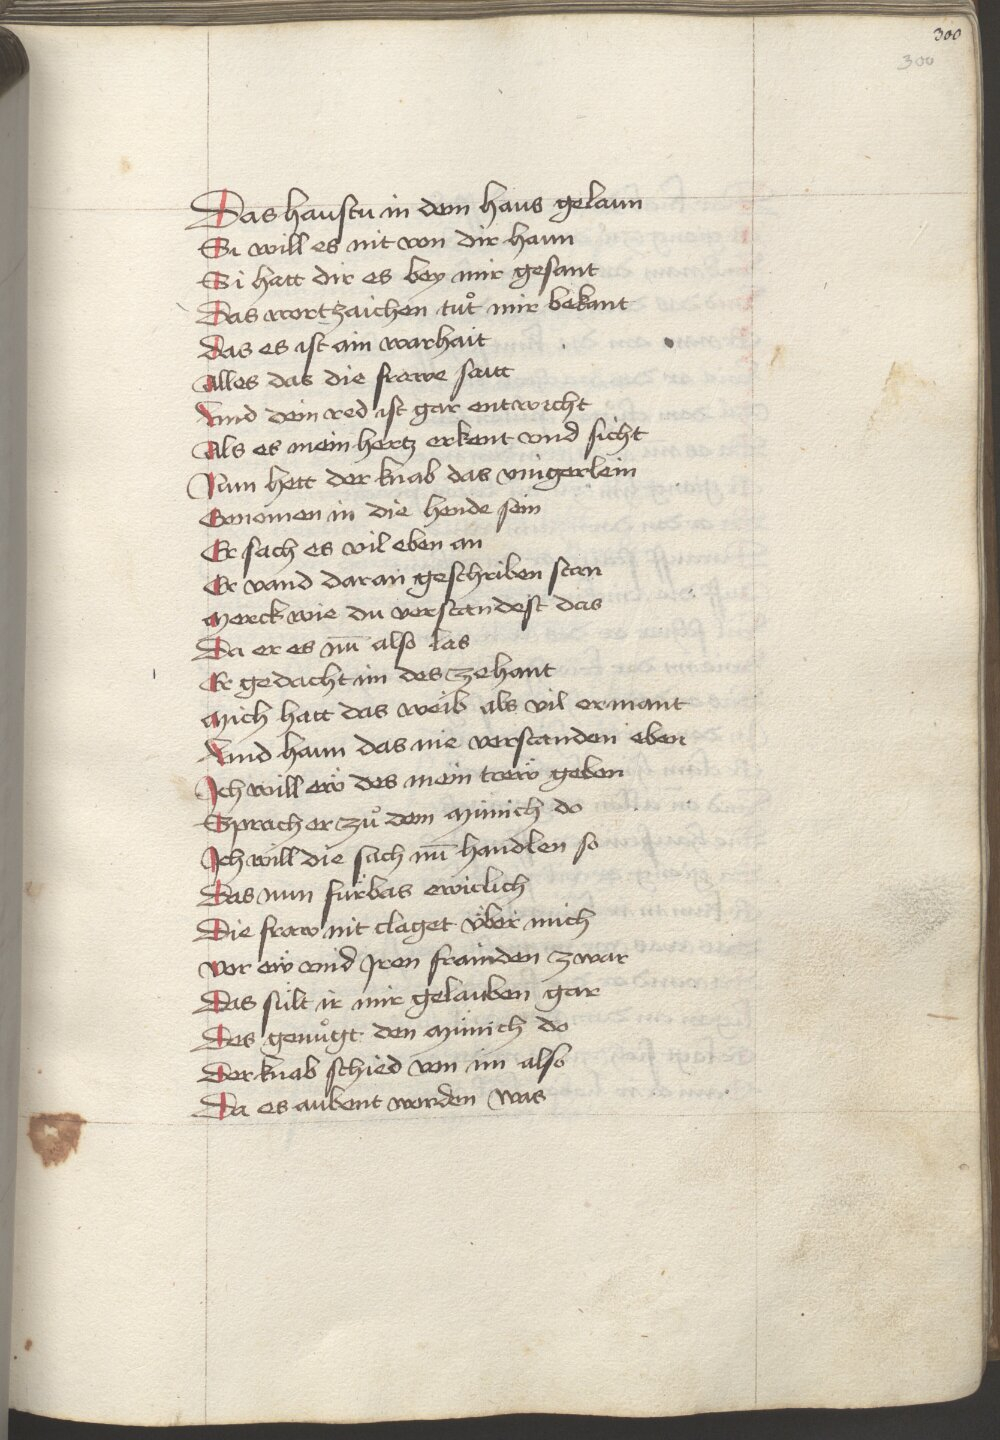 300
300
Das haustu in dem haus gelaun
Si will es nit von dir haun
Si hatt dir es bey mir gesant
Das wortzaichen tuͦt mir bekant
Das es ist ain warhait
Alles das die frawe sait
Vnd dein red ist gar entwicht
Als es mein hertz erkent vnd sicht
Nun hett der knab das vingerlein
Genomen in die hende sein
Er sach es vil eben an
Er vand daran geschriben stan
Merck wie du verstandest das
Da er es nun̄ also las
Er gedacht im des zehant
Mich hatt das weib als vil ermant
Vnd haun das nie verstanden eben
Ich will eẅ des mein treẅ geben
Sprach er zuͦ dem Münich do
Ich will die sach nū handlen so
Das nun fürbas ewiclich
Die fraw nit claget über mich
Vor eẅ vnd Jren frainden zwar
Das sült ir mir gelauben gar
Des genuͦgt den Münich do
Der knab schied von im also
Da es aubent worden was